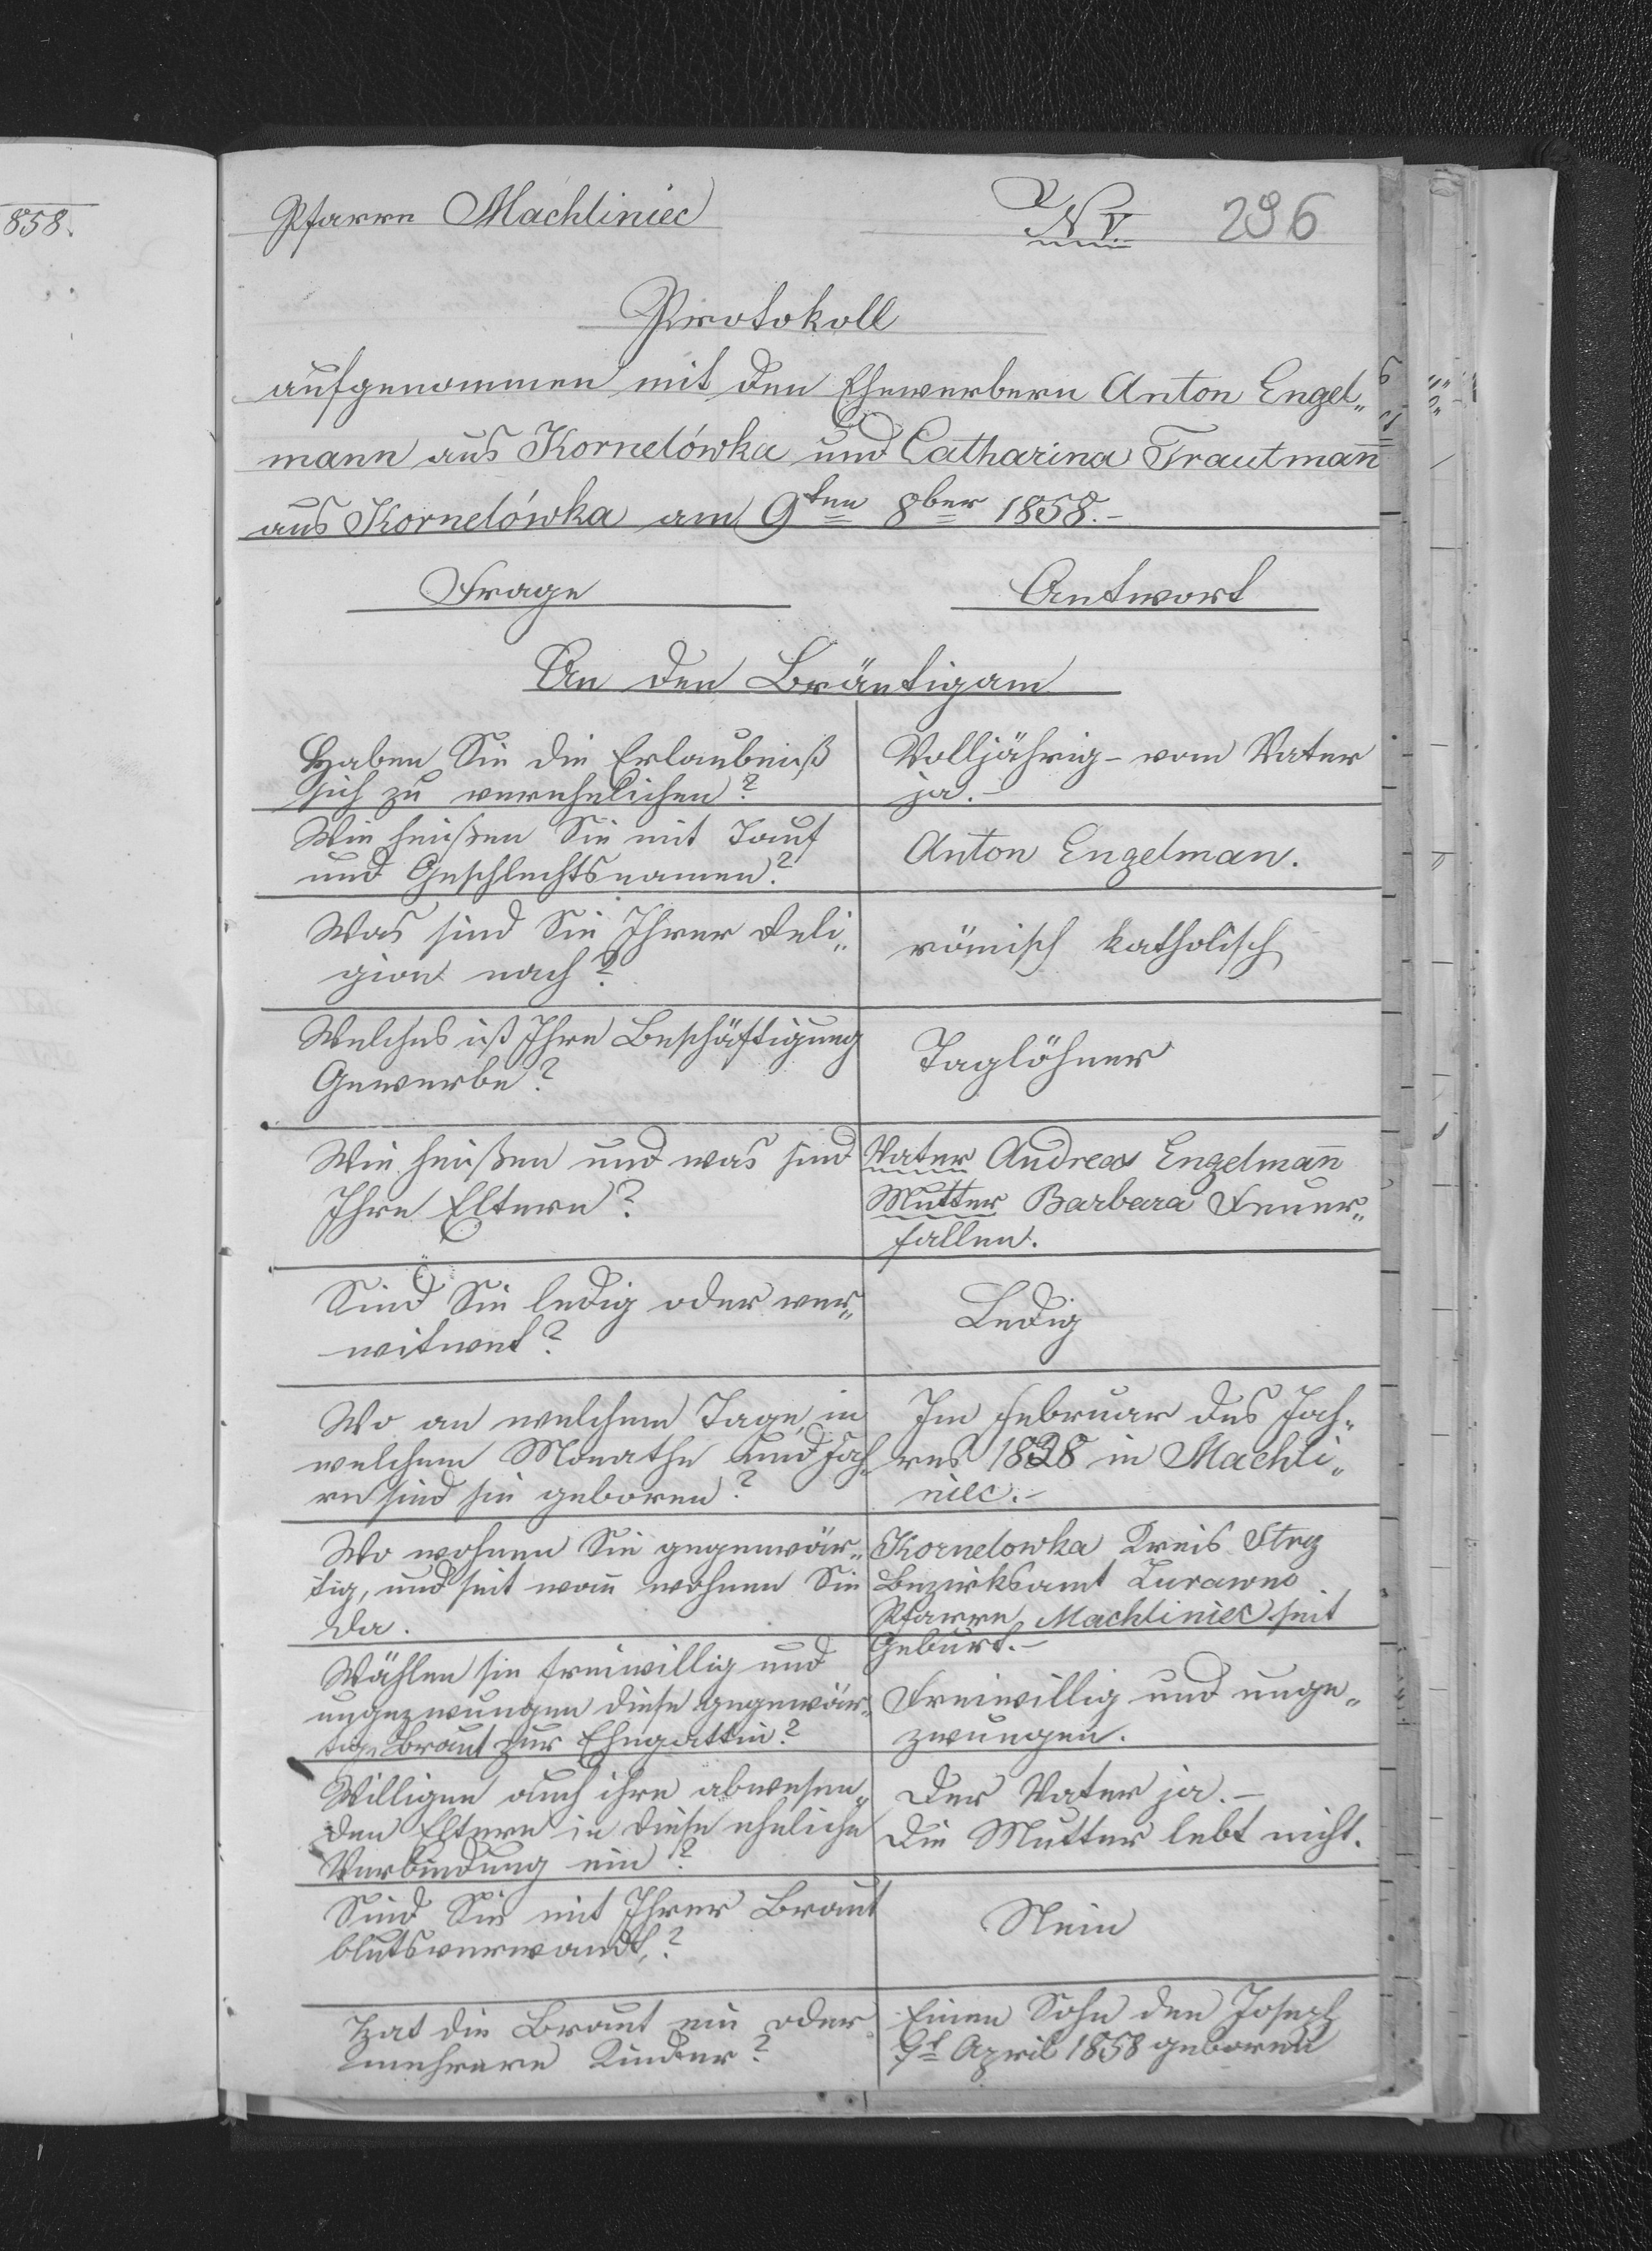 858.
Pfarre Machliniec
N V. 296
Protokoll
aufgenommen mit den Ehewerbern Anton Engel„
mann aus Kornelówka und Catharina Trautman̄
aus Kornelówka am 9ten 8ber 1858.-
Frage Antwort
An den Bräutigam
Haben Sie die Erlaubniß
sich zu verehelichen?
Volljährig - vom Vater
ja.-
Wie heißen Sie mit Tauf
und Geschlechtsnamen?
Anton Engelman.
Was sind Sie Ihrer Reli„
gion nach?
römisch katholisch
Welches ist Ihre Beschäftigung
Gewerbe?
Taglöhner
Wie heißen und was sind
Ihre Eltern?
Vater Andreas Engelman̄
Mutter Barbara Feuer„
fallen.
Sind Sie ledig oder ver„
witwet?
Ledig
Wo an welchem Tage, in
welchem Monathe und Jah„
re sind sie geboren?
Im Februar des Jah„
res 1838 in Machli„
niec.-
Wo wohnen Sie gegenwär„
tig, und seit wan̄ wohnen Sie
da.
Kornelowka Kreis Stry
Bezirksamt Zurawno
Pfarre Machliniec seit
Geburt.-
Wählen sie freiwillig und
ungezwungen diese gegenwär„
tige Braut zur Ehegattin?
Freiwillig und unge„
zwungen.
Willigen auch ihre abwesen„
den Eltern in diese eheliche
Verbindung ein?
Der Vater ja.-
Die Mutter lebt nicht.
Sind Sie mit Ihrer Braut
blutsverwandt?
Nein
Hat die Braut ein oder
mehrere Kinder?
Einen Sohn den Joseph
April 1858 geboren